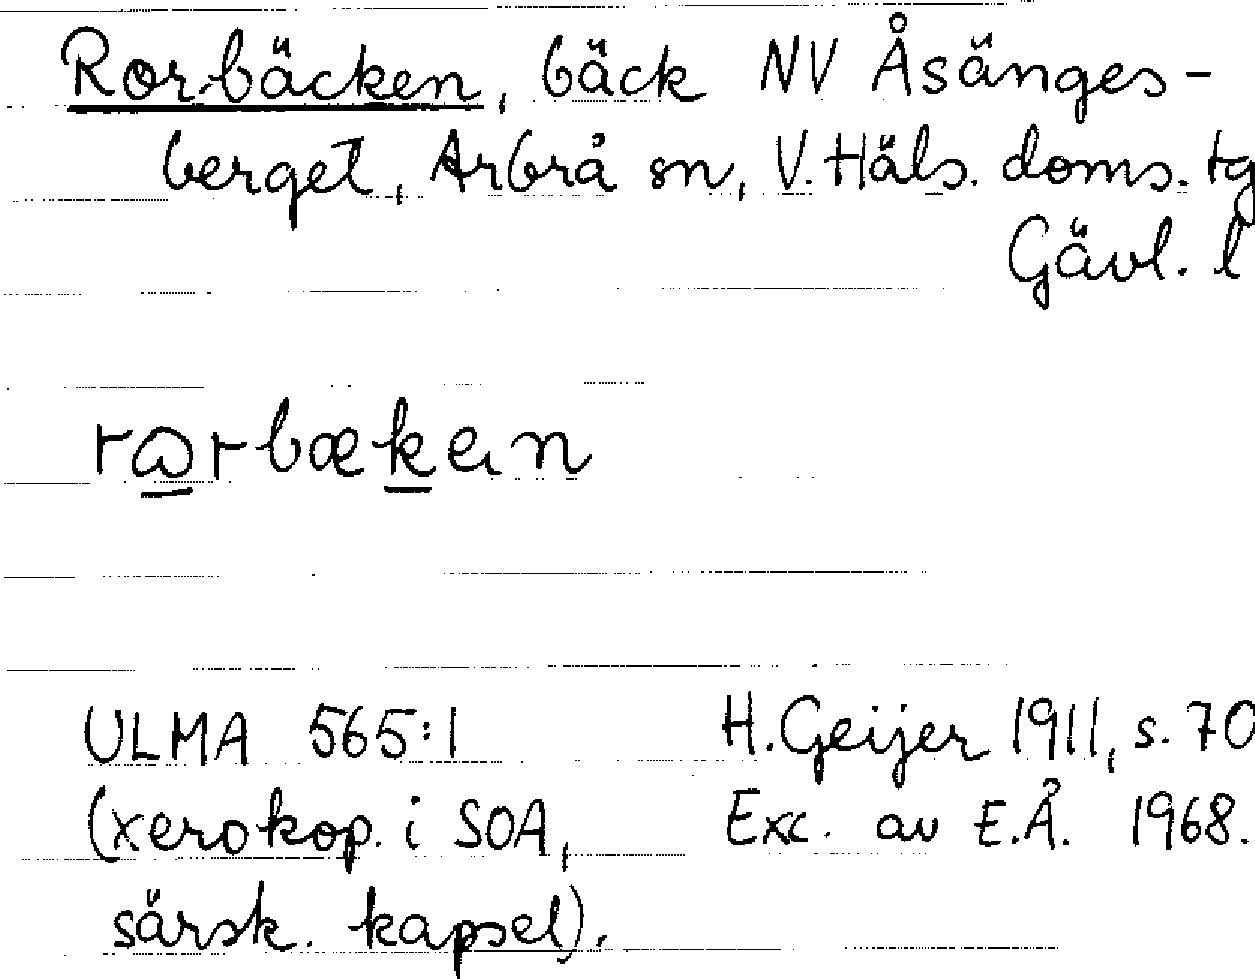 Rorbäcken, bäck NV Åsänges-
berget, Arbrå sn, V. Häls. doms. tg
Gävl. l
ULMA 565:1 H. Geijer 1911, s. 70
(xerokop. i SOA, Exc. av E.Å. 1968.
särsk. kapsel).